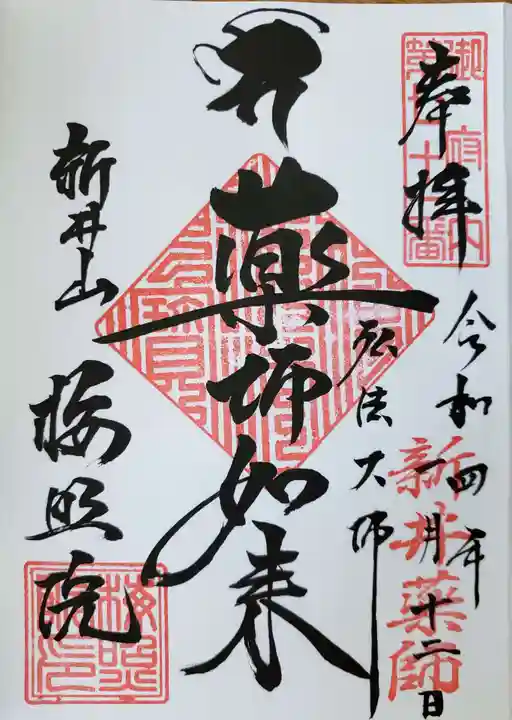 奉拝
令和四年
一月十二日
新井薬師
弘法大師
薬師如来
新井山
梅照院